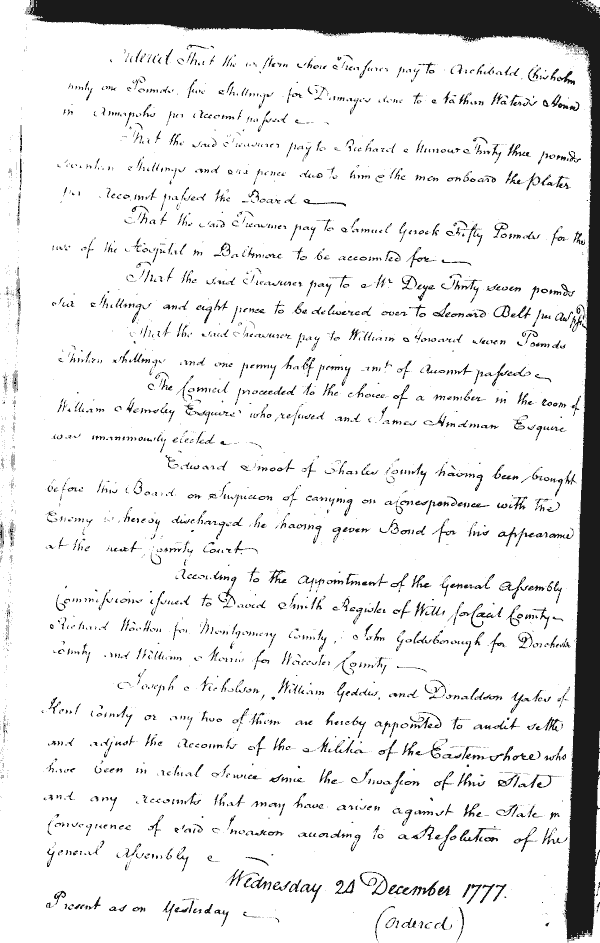 Ordered That the western shore Treasurer pay to Archibald Chisholm
ninty one Pounds five Shillings for Damages done to Nathan Waters's House
in Annapolis per Account passed
That the said Treasurer pay to Richard Thirty three pounds
seventeen Shillings and six pence due to him & the men onboard the Plater
per Account passed the Board
That the said Treasurer pay to Samuel Gerock Fifty Pounds for the
use of the Hospital in Baltimore to be accounted for
That the said Treasurer pay to Mr Deye Thirty seven pounds
six Shillings and eight pence to be delivered over to Leonard Belt per
That the said Treasurer pay to William Howard seven Pounds
Thirteen shillings and one penny half penny amt. of Account passed
The Council proceeded to the choice of a member in the room of
William Hemsley Esquire who refused and James Hindman Esquire
was unanimously elected
Edward Smoot of Charles County having been brought
before this Board on Suspicion of carrying on a Corespondence with the
Enemy is hereby discharged he having given Bond for his appearance
at the next County Court
According to the appointment of the General Assembly
Commissions issued to David Smith Register of Wills for Cecil County
Richard Wootton for Montgomery County, John Goldsborough for Dorchester
County and William Morris for Worcester County
Joseph Nicholson, William Geddis, and Donaldson Yates of
Kent County or any two of them are hereby appointed to audit settle
and adjust the Accounts of the Militia of the Eastern shore who
have been in actual Service since the Invasion of this State
and any Accounts that may have arisen against the State in
Consequence of said Invasion according to a Resolution of the
General Assembly
Wednesday 24 December 1777.
Present as on Yesterday
(Ordered)